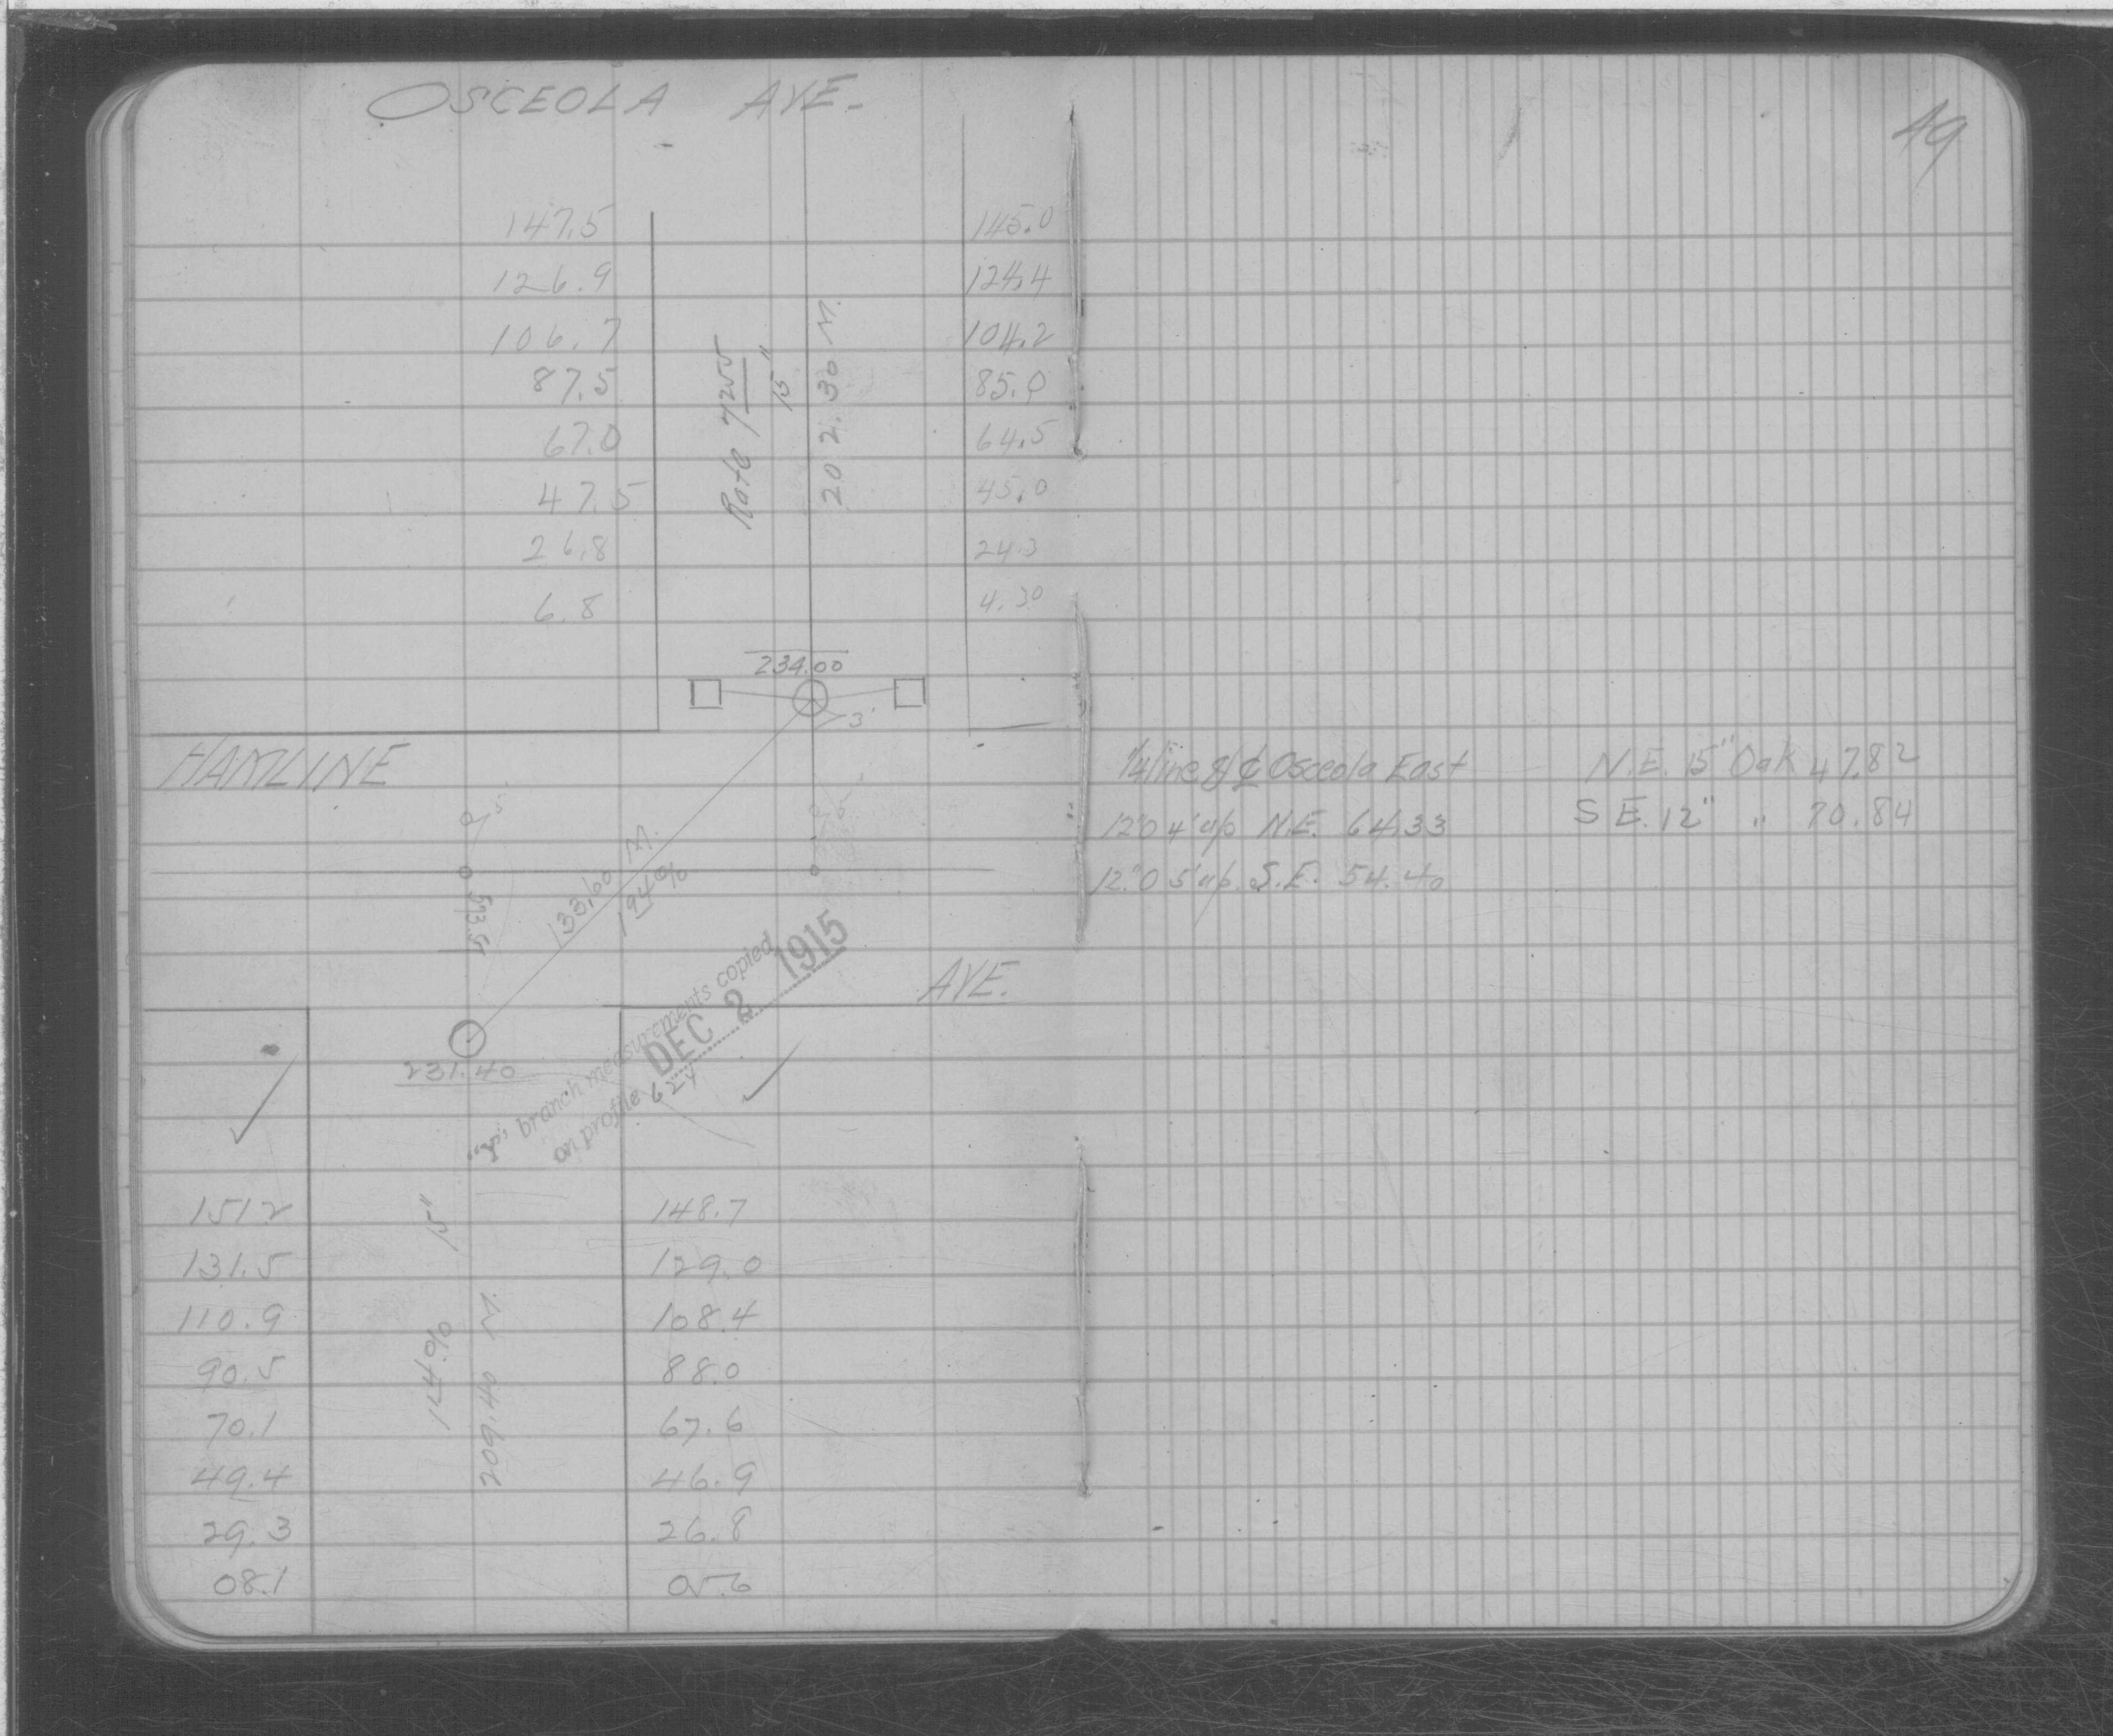 OSCEOLA AVE.
49
147.5 145.0
126.9 124.4
106.7 104.2
87.5 85.0
67.0 64.5
47.5 45.0
26.8 24.3
6.8 4.30
Rate
15"
202.30 M.
234.00
3'
HAMLINE
1/4 line & ℄ Osceola East N.E. 15" Oak 47.82
12"O 4' up N.E. 64.33 S.E. 12" " 70.84
12"O 5' up S.E. 54.40
573.5
133.60 M.
194%
AVE.
231.40
"Y" branch measurements copied
on profile 624
DEC 2 1915
151 2 148.7
131.5 129.0
110.9 108.4
90.5 88.0
70.1 67.6
49.4 46.9
29.3 26.8
08.1 05.6
15"
144%
209.40 M.